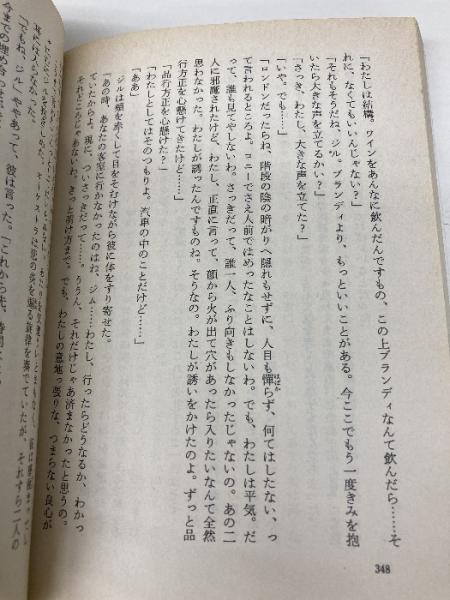 「わたしは結構。ワインをあんなに飲んだんですもの、この上ブランディなんて飲んだら……そ
れに、なくてもいいんじゃない？」
「それもそうだね、ジル。ブランディより、もっといいことがある。今ここでもう一度きみを抱
いたら大きな声を立てるかい？」
「さっき、わたし、大きな声を立てた？」
「いや。でも……」
「ロンドンだったらね、階段の陰の暗がりへ隠れもせずに、人目も憚らず、何てはしたない、っ
て言われるところよ。コニーでさえ人前でほめったなことはしないわ。でも、わたしは平気。だ
って、誰も見てやしないわ。さっきだって、誰一人、ふり向きもしなかったじゃないの。あの二
人に邪魔されたけど、わたし、正直に言って、顔から火が出て穴があったら入りたいなんて全然
思わなかった。わたしが誘ったんですものね。そうなの。わたしが誘いをかけたのよ。ずっと品
行方正を心懸けてきたけど……」
「品行方正を心懸けた？」
「わたしとしてはそのつもりよ。汽車の中のことだけど……」
「ああ」
ジルは頬を赤くして目をそむけながら彼に体をすり寄せた。
「あの時、あなたの客室に行かなかったのはね、ジム……わたし、行ったらどうなるか、わかっ
ていたからよ。現に、ついさっきだって……。ううん、それだけじゃあ済まなかったと思うの。
それどころじゃあないわ。きっと明け方まで。でも、わたしの意地っ張りな、つまらない良心が
「でもね、ジル」ややあって、彼は言った。「これから先、時間は
348